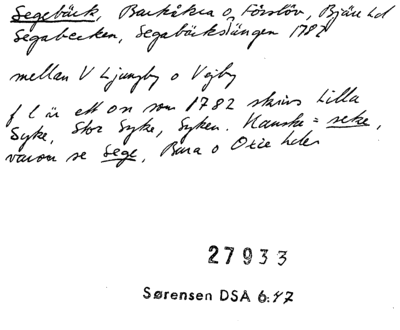 Segebäck, Barkåkra o Förslöv, Bjäre hd
Segabecken, Segabäcksängen 1782
mellan V Ljungby o Vejby
f l är ett on som 1782 skrivs Lilla
Syke, Stor Syke, Syken. Kanske = seke,
varom se Sege, Bara o Oxie hder
27933
Sørensen DSA 6:47